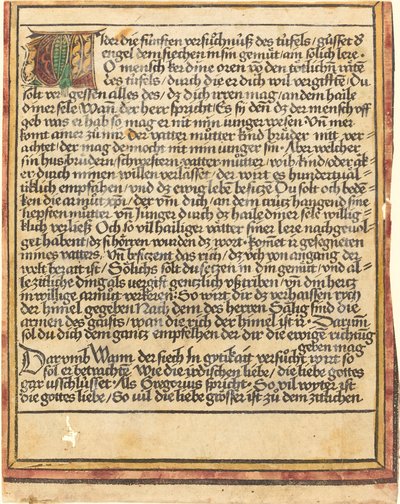 Wider die fünften versůchnuß des tüfels / güsset dͤ
engel dem siechen in sin gemüt / ain sölich lere
O mensch ker dine oren vō den tötlichn räte
des tüfels / durch die er dich wil vergifftē Du
solt vergessen alles des / dz dich irren mag / an dem haile
diner sele Wañ der herr spricht / Es sy deñ dz der mensch off
geb was er hab so mag er nit min iunger wesen Vñ mer
komt amer zů mir der vatter můtter kind brůder nitt ver=
achtet / der mag dennocht nit min iunger sin Aber welcher
sin hus brüdern schwestern vatter můtter / wib kind / oder
er durch minen willen verlasset / der wirt es hundertual=
tklich empfahen / vnd dz ewig lebē besitzen Du solt och bedē=
ken die armůt xpi / der vm dich / an dem crütz hangend sine
liepsten můtter vñ iunger durch dz haile diner sele willig=
klich verließ Och so vil hailiger vätter siner lere nachgeuol=
get habent / dz si hörren wurden dz wort Komet ir gesegneten
mines vatters Vñ besizent das rich / dz ych von angang der
welt beraitt ist / Sölichs solt du setzen in din gemüt / vnd al=
le zittliche ding als vergift gentzlich vßtriben / vñ din hertz
in willige armůt verkeren So wirt dir dz verhaissen rych
der himel gegeben Nach dem des herren Sälig sind die
armen des gaists / wan die rich der himel ist ir Darum̄
sol du dich dem gantz empfelhen der dir die ewige richtūg
geben mag
Darumb Wann der siech in gytikait versůcht wirt so
sol er betrachtē wie die irdischen liebe / die liebe gottes
gar usschlüsset Als Gregorius spricht So vil wyter ist
die gottes liebe / So vil die liebe grösser ist zů dem zitlichen